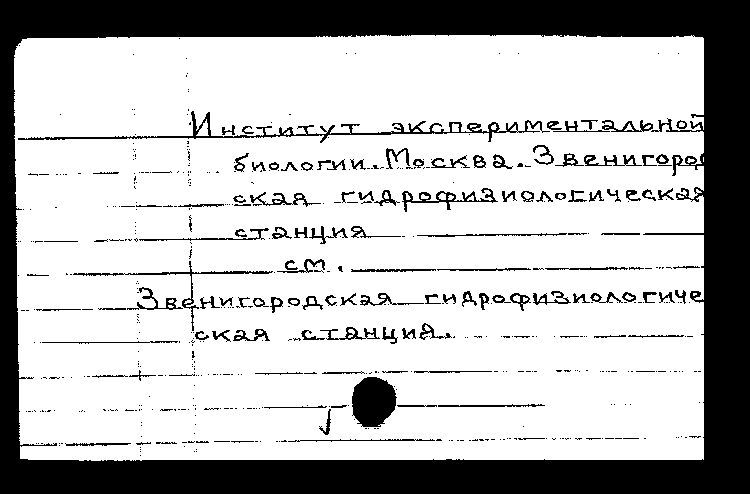 Институт экспериментальной
биологии. Москва. Звенигород
ская гидрофизиологическая
станция
см.
Звенигородская гидрофизиологиче
ская станция.